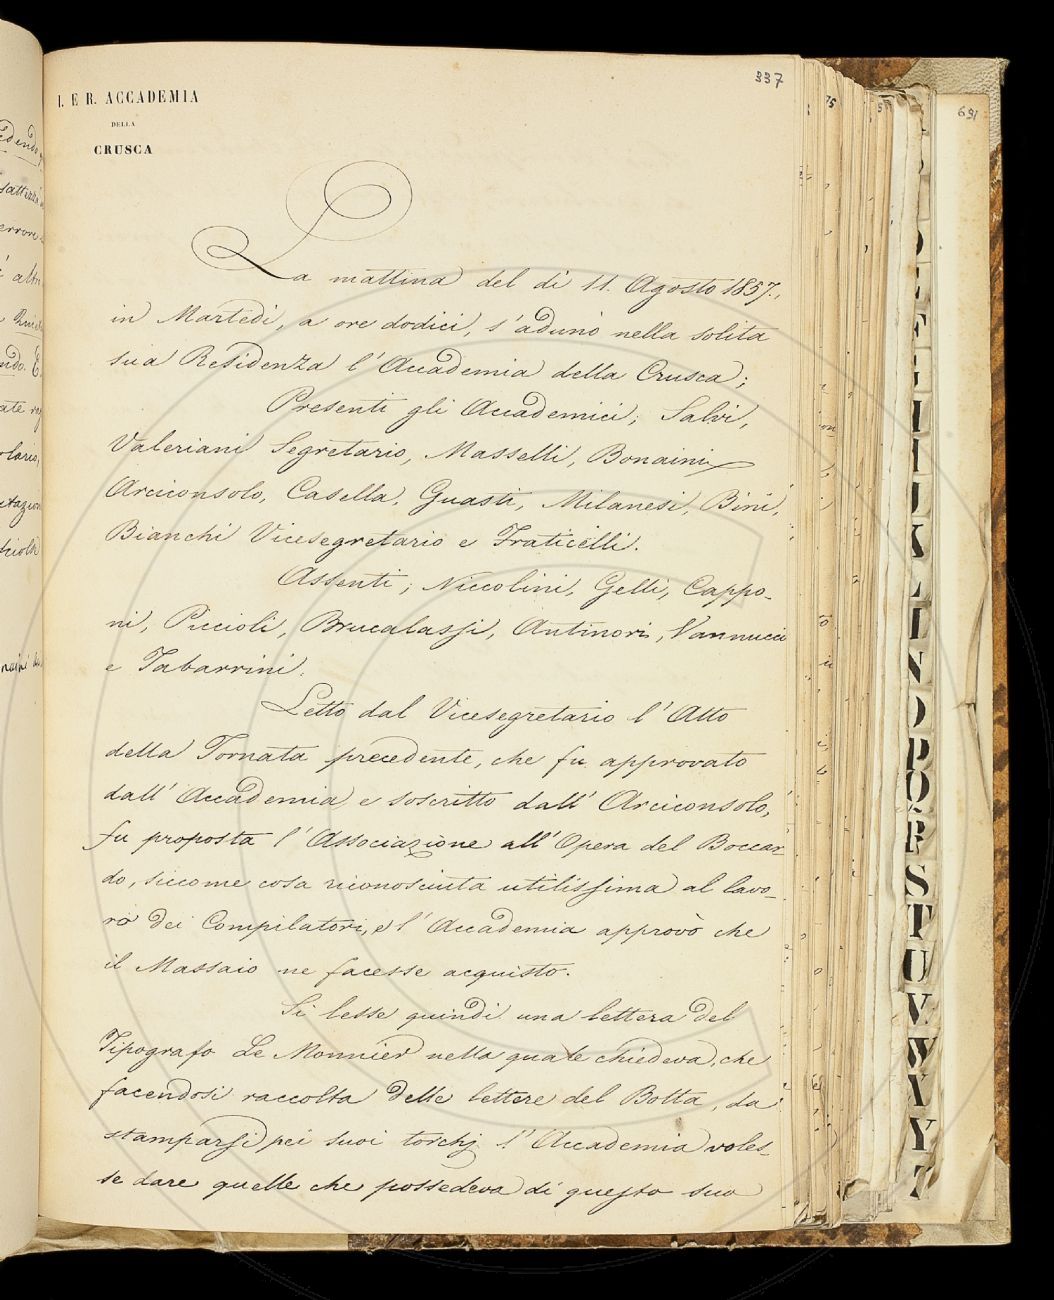 337
I. E R. ACCADEMIA
DELLA
CRUSCA
La mattina del dì 11. Agosto 1857.,
in Martedì, a ore dodici, s'adunò nella solita
sua Residenza l'Accademia della Crusca;
Presenti gli Accademici, Salvi,
Valeriani Segretario, Masselli, Bonaini
Arciconsolo, Casella, Guasti, Milanesi, Bini,
Bianchi Vicesegretario e Fraticelli.
Assenti; Niccolini, Gelli, Cappo-
ni, Piccioli, Brucalassi, Antinori, Vannucci
e Tabarrini.
Letto dal Vicesegretario l'Atto
della Tornata precedente, che fu approvato
dall'Accademia e soscritto dall'Arciconsolo,
fu proposta l'Associazione all'Opera del Boccar-
do, siccome cosa riconosciuta utilissima al lavo-
ro dei Compilatori, e l'Accademia approvò che
il Massaio ne facesse acquisto.
Si lesse quindi una lettera del
Tipografo Le Monnier nella quale chiedeva, che
facendosi raccolta delle lettere del Botta, da
stamparsi pei suoi torchj l'Accademia voles-
se dare quelle che possedeva di questo suo
691
N
O
P
Q
R
S
T
U
V
W
X
Y
Z